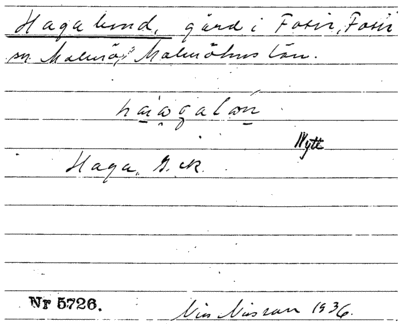 Hagalund, gård i Fosie, Fosie
sn. Malmö, Malmöhus län.
Nytt
Haga, G. ek.
Nr 5726.
Nils Nilsson 1936.